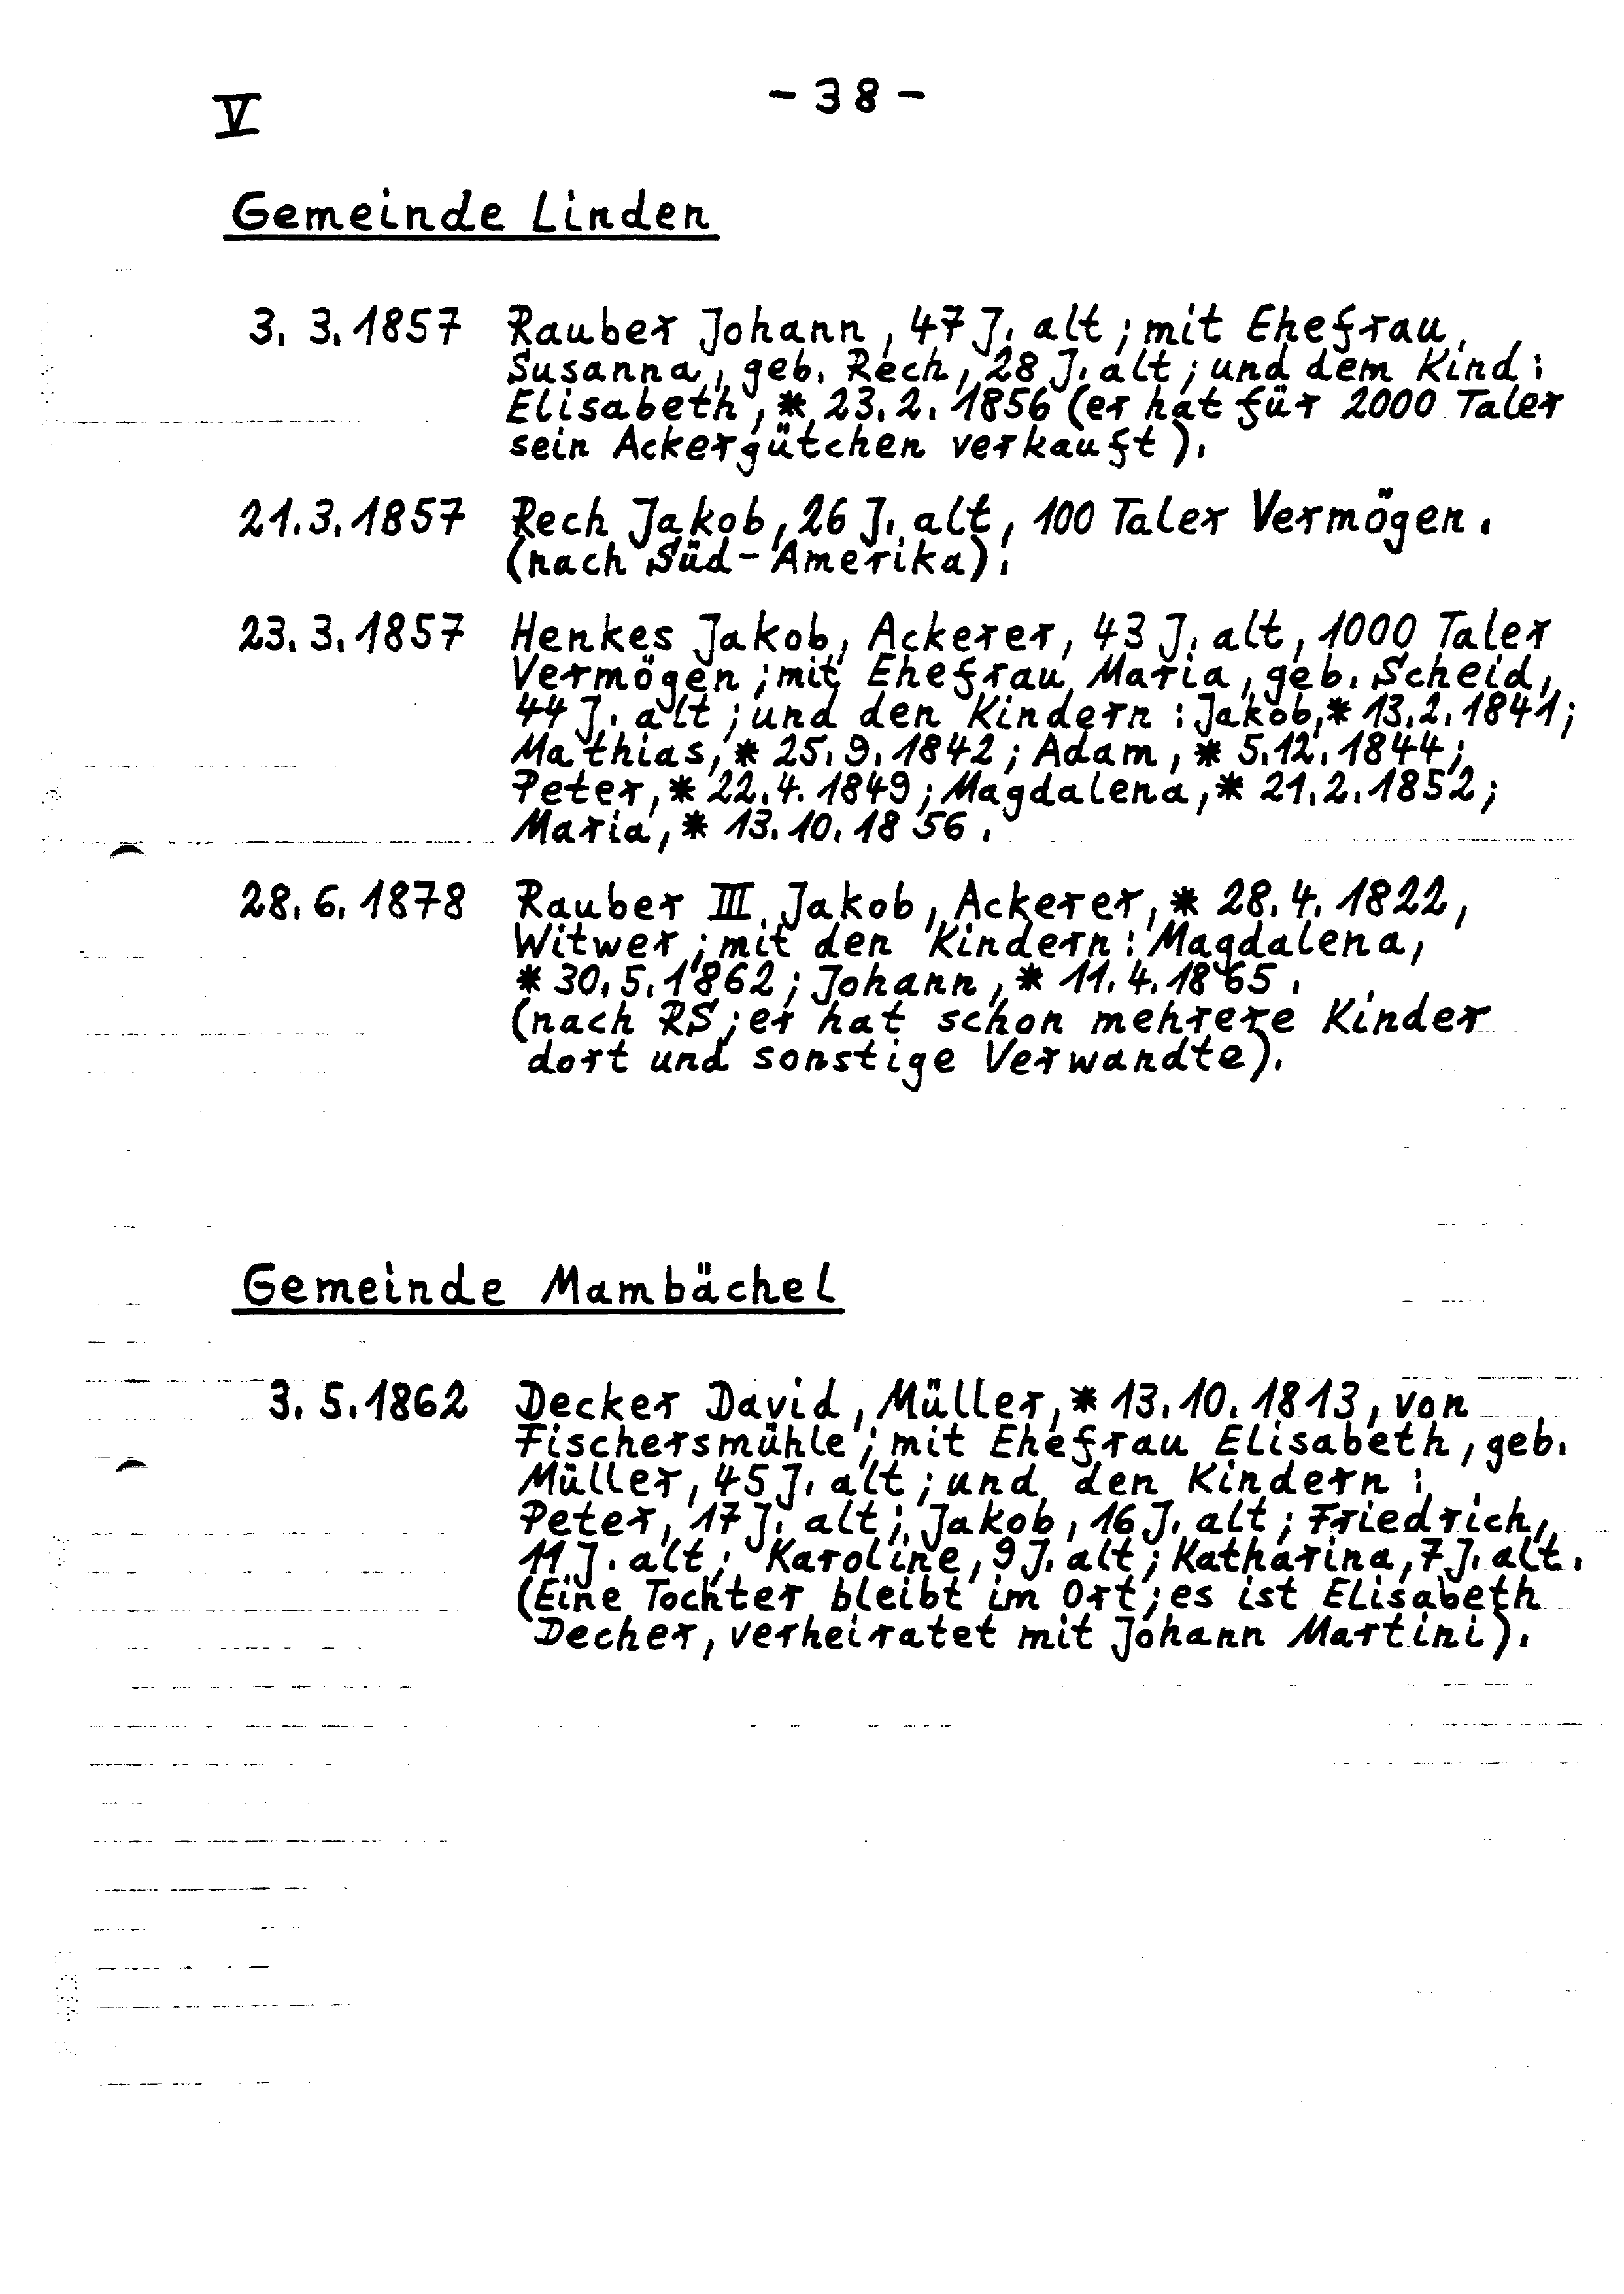 V
- 38 -
Gemeinde Linden
3. 3. 1857 Rauber Johann, 47 J. alt; mit Ehefrau
Susanna, geb. Rech, 28 J. alt; und dem Kind:
Elisabeth, * 23. 2. 1856 (er hat für 2000 Taler
sein Ackergütchen verkauft).
21. 3. 1857 Rech Jakob, 26 J. alt, 100 Taler Vermögen.
(nach Süd-Amerika).
23. 3. 1857 Henkes Jakob, Ackerer, 43 J. alt, 1000 Taler
Vermögen; mit Ehefrau Maria, geb. Scheid,
44 J. alt; und den Kindern: Jakob, * 13. 2. 1841;
Mathias, * 25. 9. 1842; Adam, * 5. 12. 1844;
Peter, * 22. 4. 1849; Magdalena, * 21. 2. 1852;
Maria, * 13. 10. 1856.
28. 6. 1878 Rauber III. Jakob, Ackerer, * 28. 4. 1822,
Witwer; mit den Kindern: Magdalena,
* 30. 5. 1862; Johann, * 11. 4. 1865.
(nach RS; er hat schon mehrere Kinder
dort und sonstige Verwandte).
Gemeinde Mambächel
3. 5. 1862 Decker David, Müller, * 13. 10. 1813, von
Fischersmühle; mit Ehefrau Elisabeth, geb.
Müller, 45 J. alt; und den Kindern:
Peter, 17 J. alt; Jakob, 16 J. alt; Friedrich,
11 J. alt; Karoline, 9 J. alt; Katharina, 7 J. alt.
(Eine Tochter bleibt im Ort; es ist Elisabeth
Decher, verheiratet mit Johann Martini).